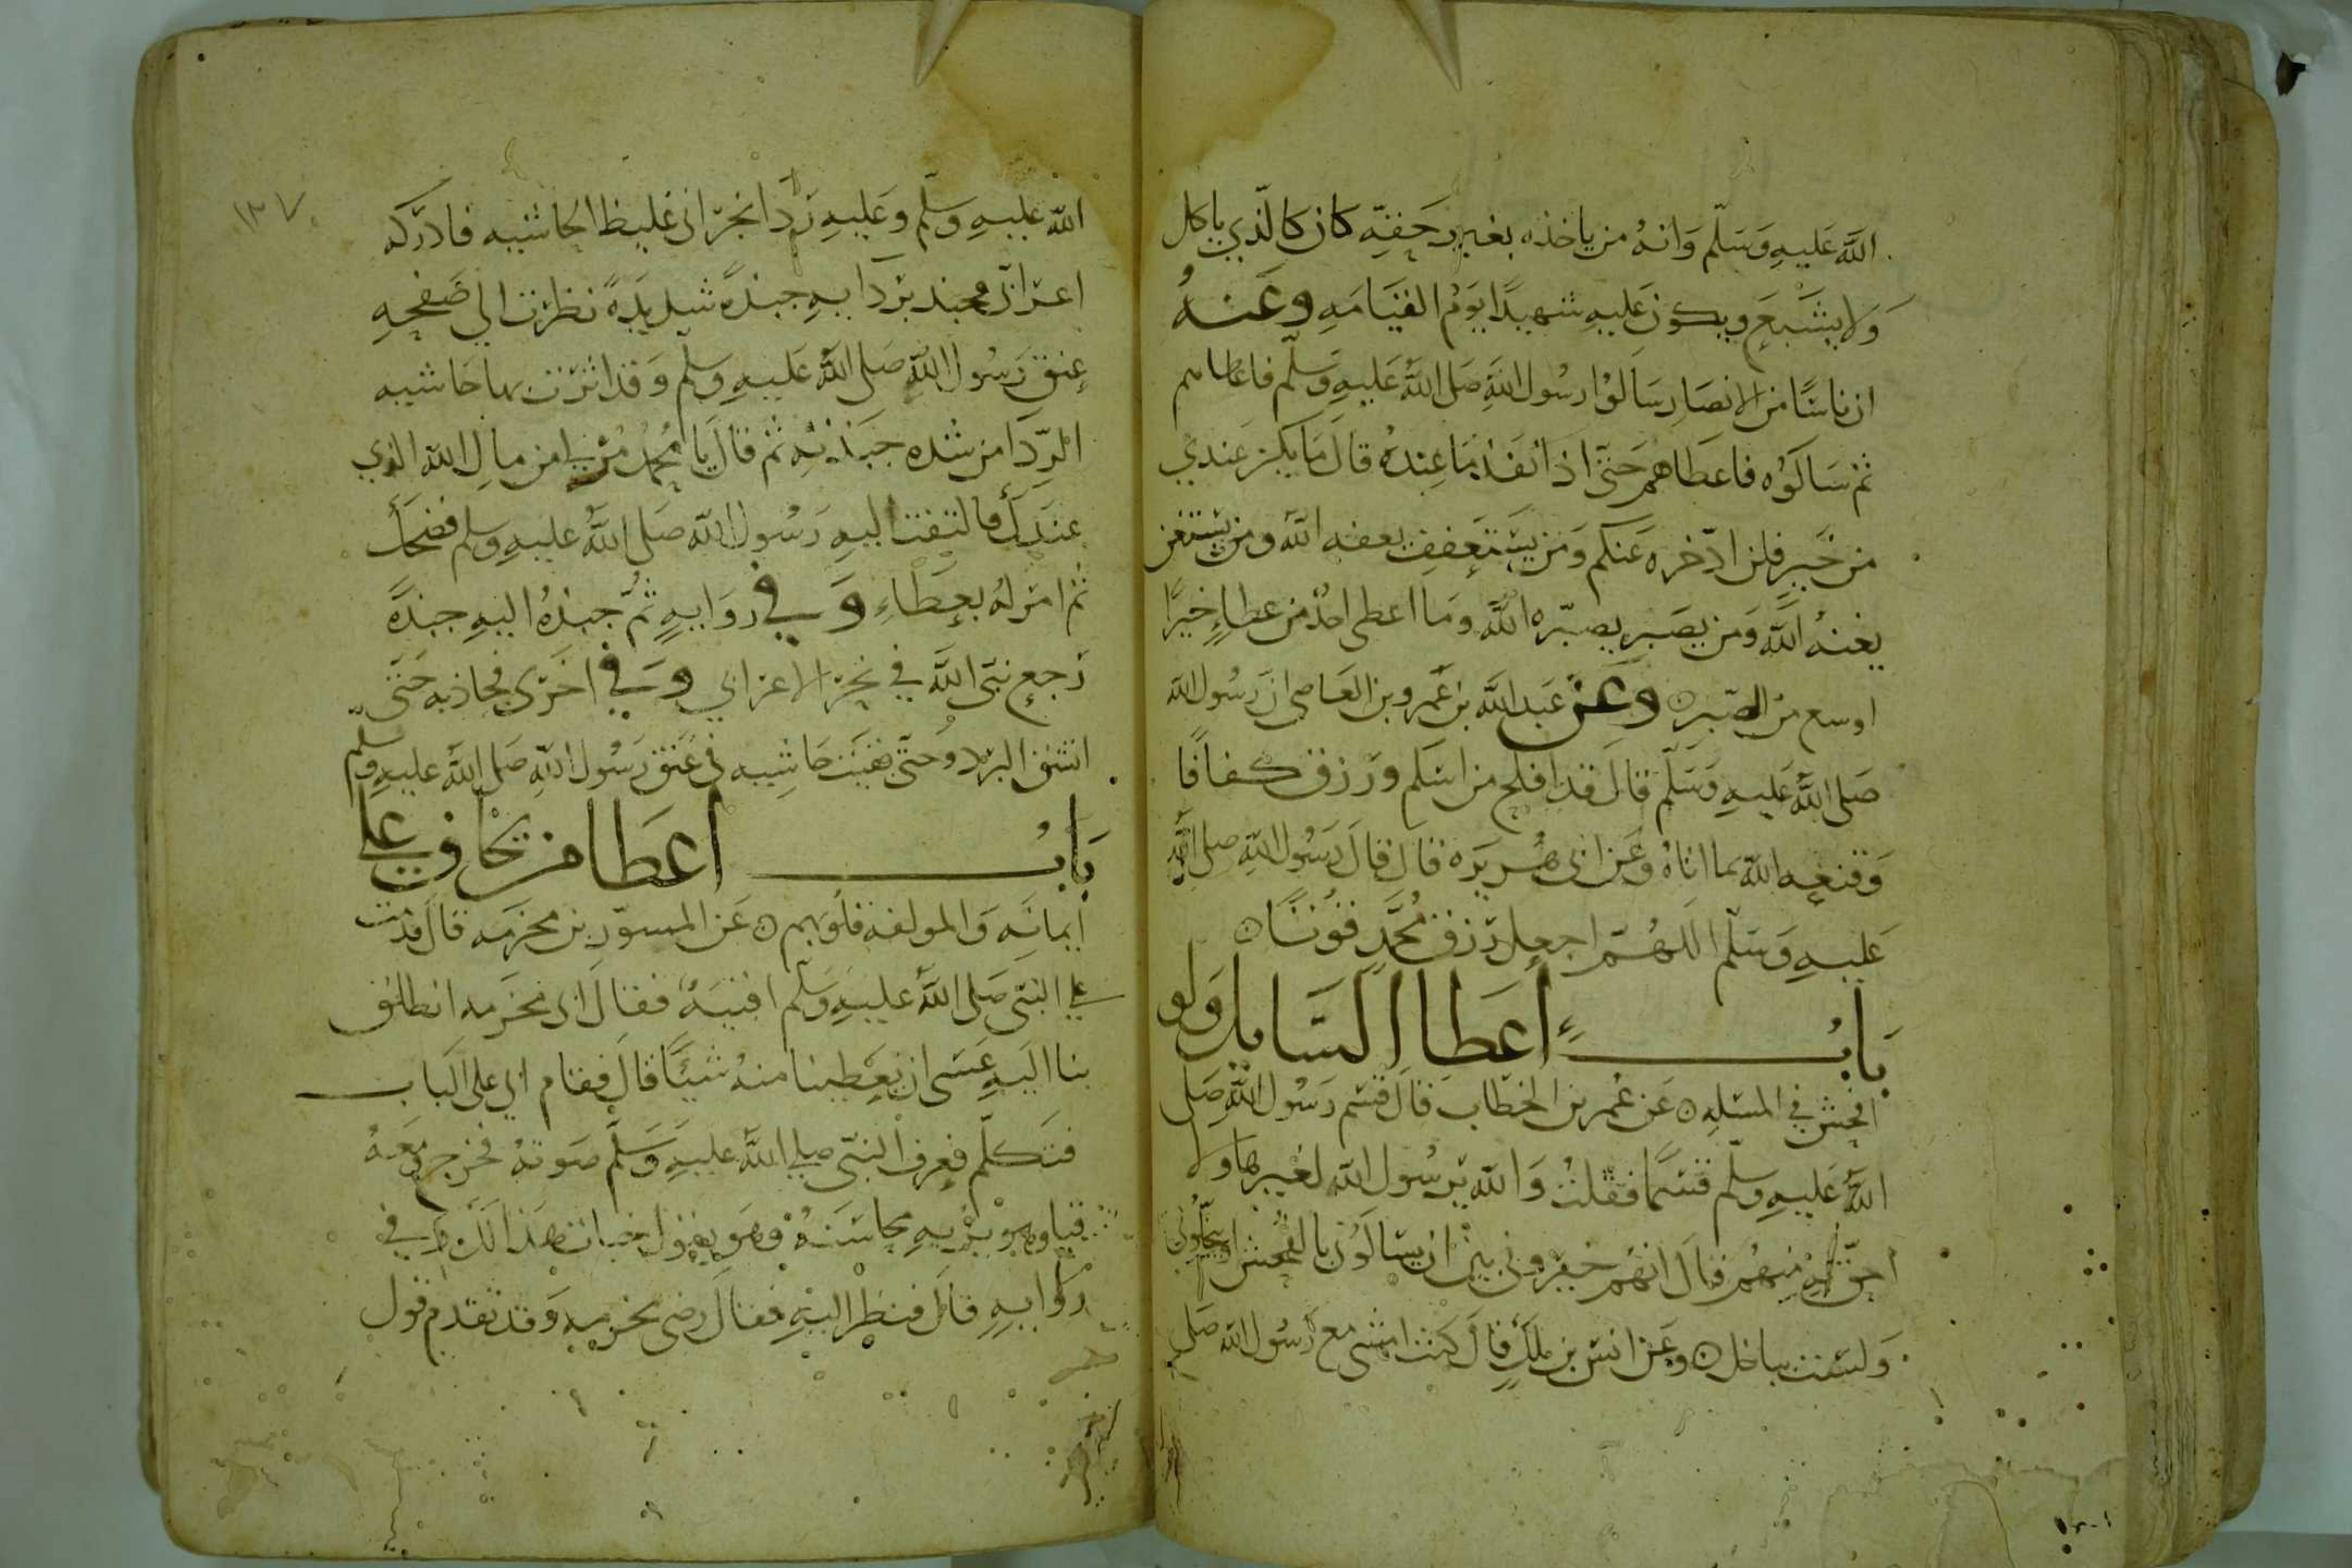 الله عليه وسلم وانه من ياخذه بغير حقه كان كالذي ياكل
ولا يشبع ويكون عليه شهيدا يوم القيامه وعنه
ان ناسا من الانصار سالوا رسول الله صلى الله عليه وسلم فاعطاهم
ثم سالوه فاعطاهم حتى اذا نفد ما عنده قال ما يكن عندي
من خير فلن ادخره عنكم ومن يستعفف يعفه الله ومن يستغن
يغنه الله ومن يصبر يصبره الله وما اعطى احد من عطاء خيرا
اوسع من الصبر وعن عبد الله بن عمرو بن العاصي ان رسول الله
صلى الله عليه وسلم قال قد افلح من اسلم ورزق كفافا
وقنعه الله بما اتاه وعن ابي هريره قال قال رسول الله صلى الله
عليه وسلم اللهم اجعل رزق محمد قوتا
باب اعطاء السايل ولو
افحش في المسئله عن عمر بن الخطاب قال قسم رسول الله صلى
الله عليه وسلم قسما فقلت والله يرسول الله لغير هاولا
احق به منهم قال انهم خيروني بين ان يسالوني بالفحش او يبخلوني
ولست بباخل وعن انس بن ملك قال كنت امشي مع رسول الله صلى
١٣٧
الله عليه وسلم وعليه ردا نجراني غليظ الحاشيه فادركه
اعرابي فجبذ بردايه جبذة شديدة نظرت الى صفحه
عنق رسول الله صلى الله عليه وسلم وقد اثرت بها حاشيه
الردا من شده جبذته ثم قال يا محمد مر لي من مال الله الذي
عندك فالتفت اليه رسول الله صلى الله عليه وسلم فضحك
ثم امر له بعطاء وفي روايه ثم جبذه اليه جبذة
رجع نبي الله في نحر الاعرابي وفي اخرى فجاذبه حتى
انشق البرد وحتى بقيت حاشيه في عنق رسول الله صلى الله عليه وسلم
باب اعطا من يخاف على
ايمانه والمولفه قلوبهم عن المسور بن مخرمه قال قدمت
على النبي صلى الله عليه وسلم اقبية فقال ابي مخرمه انطلق
بنا اليه عسى ان يعطينا منه شيئا قال فقام ابي على الباب
فتكلم فعرف النبي صلى الله عليه وسلم صوته فخرج ومعه
قبا وهو يريه محاسنه وهو يقول خبات هذا لك وفي
روايه قال فنظر اليه فقال رضي مخرمه وقد تقدم قول